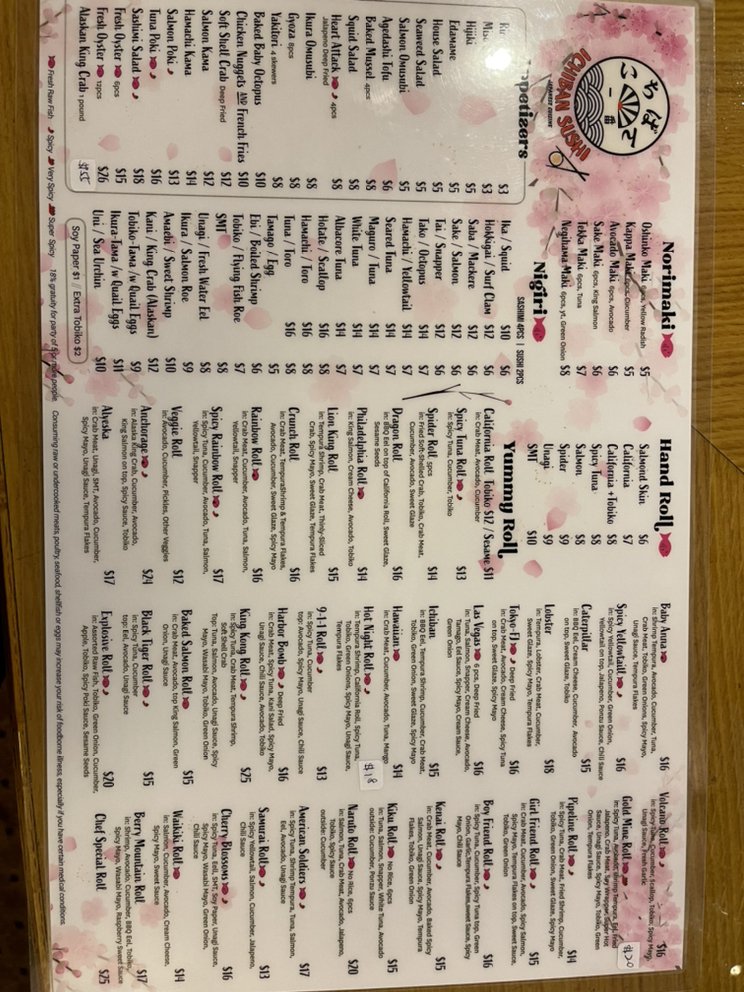 いちばん
一番
ICHIBAN SUSHI
JAPANESE CUISINE
Appetizers
$3
Miso $3
Hijiki $5
Edamame $5
House Salad $5
Seaweed Salad $5
Salmon Onusubi $5
Agedashi Tofu $6
Baked Mussel 4pcs $8
Squid Salad $8
Heart Attack 4pcs $8
Jalapeno Deep Fried
Ikura Onusubi $8
Gyoza 8pcs $8
Yakitori 4 skewers $8
Baked Baby Octopus $10
Chicken Nuggets AND French Fries $10
Soft Shell Crab Deep Fried $12
Salmon Kama $12
Hamachi Kama $14
Salmon Poki $13
Tuna Poki $16
Sashimi Salad $18
Fresh Oyster 6pcs $15
Fresh Oyster 12pcs $26
Alaskan King Crab 1 pound $55
Fresh Raw Fish Spicy Very Spicy Super Spicy
Norimaki
Oshinko Maki 6pcs, Yellow Radish $5
Kappa Maki 6pcs, Cucumber $5
Avocado Maki 6pcs, Avocado $6
Sake Maki 6pcs, King Salmon $6
Tekka Maki 6pcs, Tuna $7
Negihama Maki 6pcs, yt, Green Onion $8
Nigiri
SASHIMI 4PCS | SUSHI 2PCS
Ika / Squid $10 $6
Hokkigai / Surf Clam $12 $6
Saba / Mackere $12 $6
Sake / Salmon $12 $6
Tai / Snapper $12 $6
Tako / Octopus $14 $7
Hamachi / Yellowtail $14 $7
Seared Tuna $14 $7
Maguro / Tuna $14 $7
White Tuna $14 $7
Albacore Tuna $14 $7
Hotate / Scallop $16 $8
Hamachi / Toro $16 $8
Tuna / Toro $16 $8
Tamago / Egg $5
Ebi / Boiled Shrimp $6
Tobiko / Flying Fish Roe $7
SMT $8
Unagi / Fresh Water Eel $8
Ikura / Salmon Roe $9
Amaebi / Sweet Shrimp $10
Kani / King Crab (Alaskan) $12
Tobiko-Tama /w Quail Eggs $9
Ikura-Tama /w Quail Eggs $11
Uni / Sea Urchin $10
Soy Paper $1 // Extra Tobiko $2
18% gratuity for party of 5 or more people.
Hand Roll
Salmond Skin $6
California $7
California +Tobiko $8
Spicy Tuna $8
Salmon $8
Spider $9
Unagi $9
SMT $10
Yummy Roll
California Roll Tobiko $12 / Sesame $11
in: Crab Meat, Avocado, Cucumber
Spicy Tuna Roll $13
in: Spicy Tuna, Cucumber, Tobiko
Spider Roll 5pcs $14
in: Fried Soft-Shelled Crab, Tobiko, Crab Meat,
Cucumber, Avocado, Sweet Glaze
Dragon Roll $16
in: BBQ Eel on top of California Roll, Sweet Glaze,
Sesame Seeds
Philadelphia Roll $14
in: King Salmon, Cream Cheese, Avocado, Tobiko
Lion King Roll $15
in: Tempura Shrimp, Crab meat, Thinly-Sliced
Crab, Spicy Mayo, Sweet Glaze, Tempura Flakes
Crunch Roll $16
in: Crab Meat, TempuraShrimp & Tempura Flakes,
Avocado, Cucumber, Sweet Glaze, Spicy Mayo
Rainbow Roll $16
in: Crab Meat, Cucumber, Avocado, Tuna, Salmon,
Yellowtail, Snapper
Spicy Rainbow Roll $17
in: Spicy Tuna, Cucumber, Avocado, Tuna, Salmon,
Yellowtail, Snapper
Veggie Roll $12
in: Avocado, Cucumber, Pickles, Other Veggies
Anchorage $24
in: Alaska King Crab, Cucumber, Avocado,
King Salmon on top, Spicy Sauce, Tobiko
Alyeska $17
in: Crab Meat, Unagi, SMT, Avocado, Cucumber,
Spicy Mayo, Unagi Sauce, Tempura Flakes
Baby Anna $16
in: Shrimp Tempura, Avocado, Cucumber, Tuna,
Crab Meat, Tobiko, Green Onions, Spicy Mayo,
Unagi Sauce, Tempura Flakes
Spicy Yellowtail $16
in: Spicy Yellowtail, Cucumber, Green Onion,
Yellowtail on top, Jalapeno, Ponzu Sauce, Chili Sauce
Caterpillar $15
in: BBQ Eel, Cream Cheese, Cucumber, Avocado
on top, Sweet Glaze, Tobiko
Lobster $18
in: Tempura, Lobster, Crab Meat, Cucumber,
Sweet Glaze, Spicy Mayo, Tempura Flakes
Tokyo-EJ Deep Fried $16
in: Crab Meat, Avocado, Cream Cheese, Spicy Tuna
on top, Sweet Glaze, Spicy Mayo
Las Vegas 6 pcs, Deep Fried $16
in: Tuna, Salmon, Snapper, Cream Cheese, Avocado,
Tamago, Eel Sauce, Spicy Mayo, Cream Sauce,
Green Onion
Ichiban $15
in: BBQ Eel, Tempura Shrimp, Cucumber, Crab Meat,
Tobiko, Green Onion, Sweet Glaze, Spicy Mayo
Hawaiian $14
in: Crab Meat, Cucumber, Avocado, Tuna, Mango
Hot Night Roll $18
in: Tempura Shrimp, California Roll, Spicy Tuna,
Tobiko, Green Onions, Spicy Mayo, Unagi Sauce,
Tempura Flakes
9-1-1 Roll $13
in: Spicy Tuna, Cucumber
top: Avocado, Spicy Mayo, Unagi Sauce, Chili Sauce
Harbor Bomb Deep Fried $16
in: Crab Meat, Spicy Tuna, Kani Salad, Spicy Mayo,
Unagi Sauce, Chili Sauce, Avocado, Tobiko
King Kong Roll $25
in: Spicy Tuna, Crab Meat, Tempura Shrimp,
Soft Shell Crab
Top: Tuna, Salmon, Avocado, Unagi Sauce, Spicy
Mayo, Wasabi Mayo, Tobiko, Green Onion
Baked Salmon Roll $15
in: Crab Meat, Avocado, top King Salmon, Green
Onion, Unagi Sauce
Black Tiger Roll $15
in: Spicy Tuna, Cucumber
top: Eel, Avocado, Unagi Sauce
Explosive Roll $20
in: Assorted Raw Fish, Tobiko, Green Onion, Cucumber,
Apple, Tobiko, Spicy Poki Sauce, Sesame Seeds
Volcano Roll $16
in: Spicy Tuna, Cucumber, Scallop, Tobiko, Spicy Mayo,
Unagi Sauce, Fresh Garlic
Gold Mine Roll $20
in: Spicy Tuna, Avocado, Shrimp Tempura, Eel, Fried
Jalapeno, Crab Meat, Soy Wrapper, Super Hot
Sauce, Unagi Sauce, Spicy Mayo, Tobiko, Green
Onion, Tempura Flakes
Pipeline Roll $14
in: Spicy Tuna, Crab Meat, Fried Shrimp, Cucumber
Tobiko, Green Onion, Sweet Glaze, Spicy Mayo
Girl Friend Roll $15
in: Crab Meat, Cucumber, Avocado, Spicy Salmon,
Spicy Mayo, Tempura Flakes on top, Sweet Sauce,
Tobiko, Green Onion
Boy Friend Roll $16
in: Spicy Tuna, Cucumber, Spicy Tuna top, Green
Onion, Garlic, Tempura Flakes, Sweet Sauce, Spicy
Mayo, Chili Sauce
Kenai Roll $15
in: Crab Meat, Cucumber, Avocado, Baked Spicy
Salmon, Unagi Sauce, Spicy Mayo, Tempura
Flakes, Tobiko, Green Onion
Kiku Roll No Rice, 6pcs $15
in: Tuna, Salmon, Snapper, White Tuna, Avocado
outside: Cucumber, Ponzu Sauce
Naruto Roll No Rice, 6pcs $20
in: Salmon, Tuna, Crab Meat, Avocado, Jalapeno,
Tobiko, Spicy Sauce
outside: Cucumber
American Soldiers $17
in: Spicy Tuna, Shrimp Tempura, Tuna, Salmon,
Eel, Avocado, Unagi Sauce
Samurai Roll $13
in: Spicy Yellowtail, Salmon, Cucumber, Jalapeno,
Chili Sauce
Cherry Blossoms $16
in: Spicy Tuna, Eell, SMT, Soy Paper, Unagi Sauce,
Spicy Mayo, Wasabi Mayo, Green Onion,
Chili Sauce
Waikiki Roll $14
in: Salmon, Cucumber, Avocado, Cream Cheese,
Spicy Mayo, Sweet Sauce
Berry Mountain Roll $17
in: Shrimp, Avocado, Cucumber, BBQ Eel, Tobiko,
Spicy Mayo, Wasabi Mayo, Raspberry Sweet Sauce
Chef Special Roll $25
Consuming raw or undercooked meats, poultry, seafood, shellfish or eggs may increase your risk of foodborne illness, especially if you have certain medical conditions.